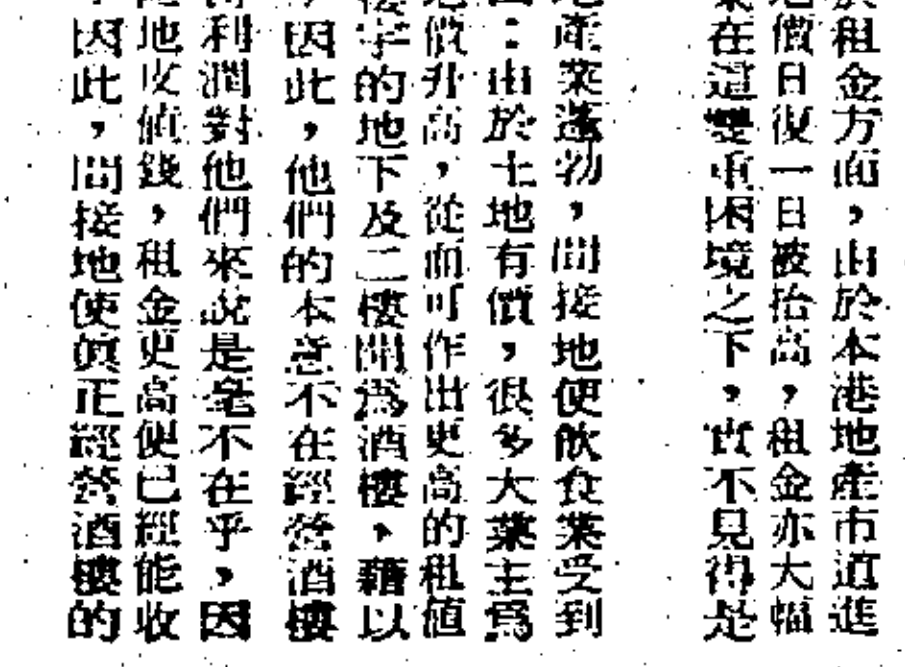 租金方面，由於本港地產市道進
價日復一日被抬高，租金亦大幅
在這雙重困境之下，實不見得是
產業蓬勃，間接地使飲食業受到
：由於土地有價，很多大業主爲
價升高，從而可作出更高的租值
字的地下及二樓開爲酒樓，藉以
因此，他們的本意不在經營酒樓
利潤對他們來說是毫不在乎，因
地皮值錢，租金更高便已經能收
因此，間接地使眞正經營酒樓的